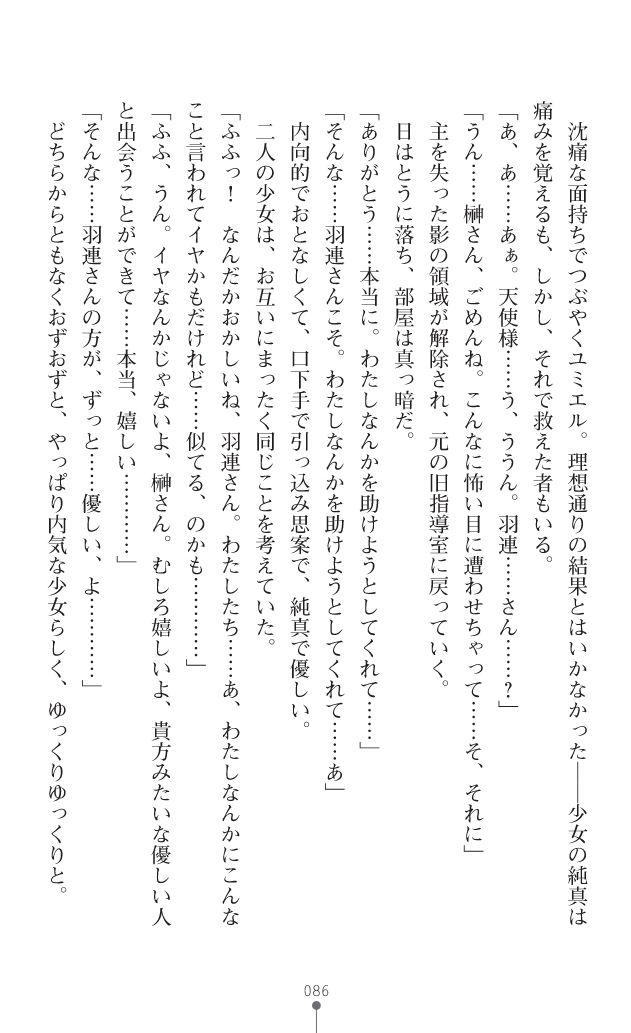 沈痛な面持ちでつぶやくユミエル。理想通りの結果とはいかなかった――少女の純真は
痛みを覚えるも、しかし、それで救えた者もいる。
「あ、あ……あぁ。天使様……う、ううん。羽連……さん……？」
「うん……榊さん、ごめんね。こんなに怖い目に遭わせちゃって……そ、それに」
　主を失った影の領域が解除され、元の旧指導室に戻っていく。
　日はとうに落ち、部屋は真っ暗だ。
「ありがとう……本当に。わたしなんかを助けようとしてくれて……」
「そんな……羽連さんこそ。わたしなんかを助けようとしてくれて……あ」
　内向的でおとなしくて、口下手で引っ込み思案で、純真で優しい。
　二人の少女は、お互いにまったく同じことを考えていた。
「ふふっ！　なんだかおかしいね、羽連さん。わたしたち……あ、わたしなんかにこんな
こと言われてイヤかもだけれど……似てる、のかも…………」
「ふふ、うん。イヤなんかじゃないよ、榊さん。むしろ嬉しいよ、貴方みたいな優しい人
と出会うことができて……本当、嬉しい…………」
「そんな……羽連さんの方が、ずっと……優しい、よ…………」
　どちらからともなくおずおずと、やっぱり内気な少女らしく、ゆっくりゆっくりと。
086